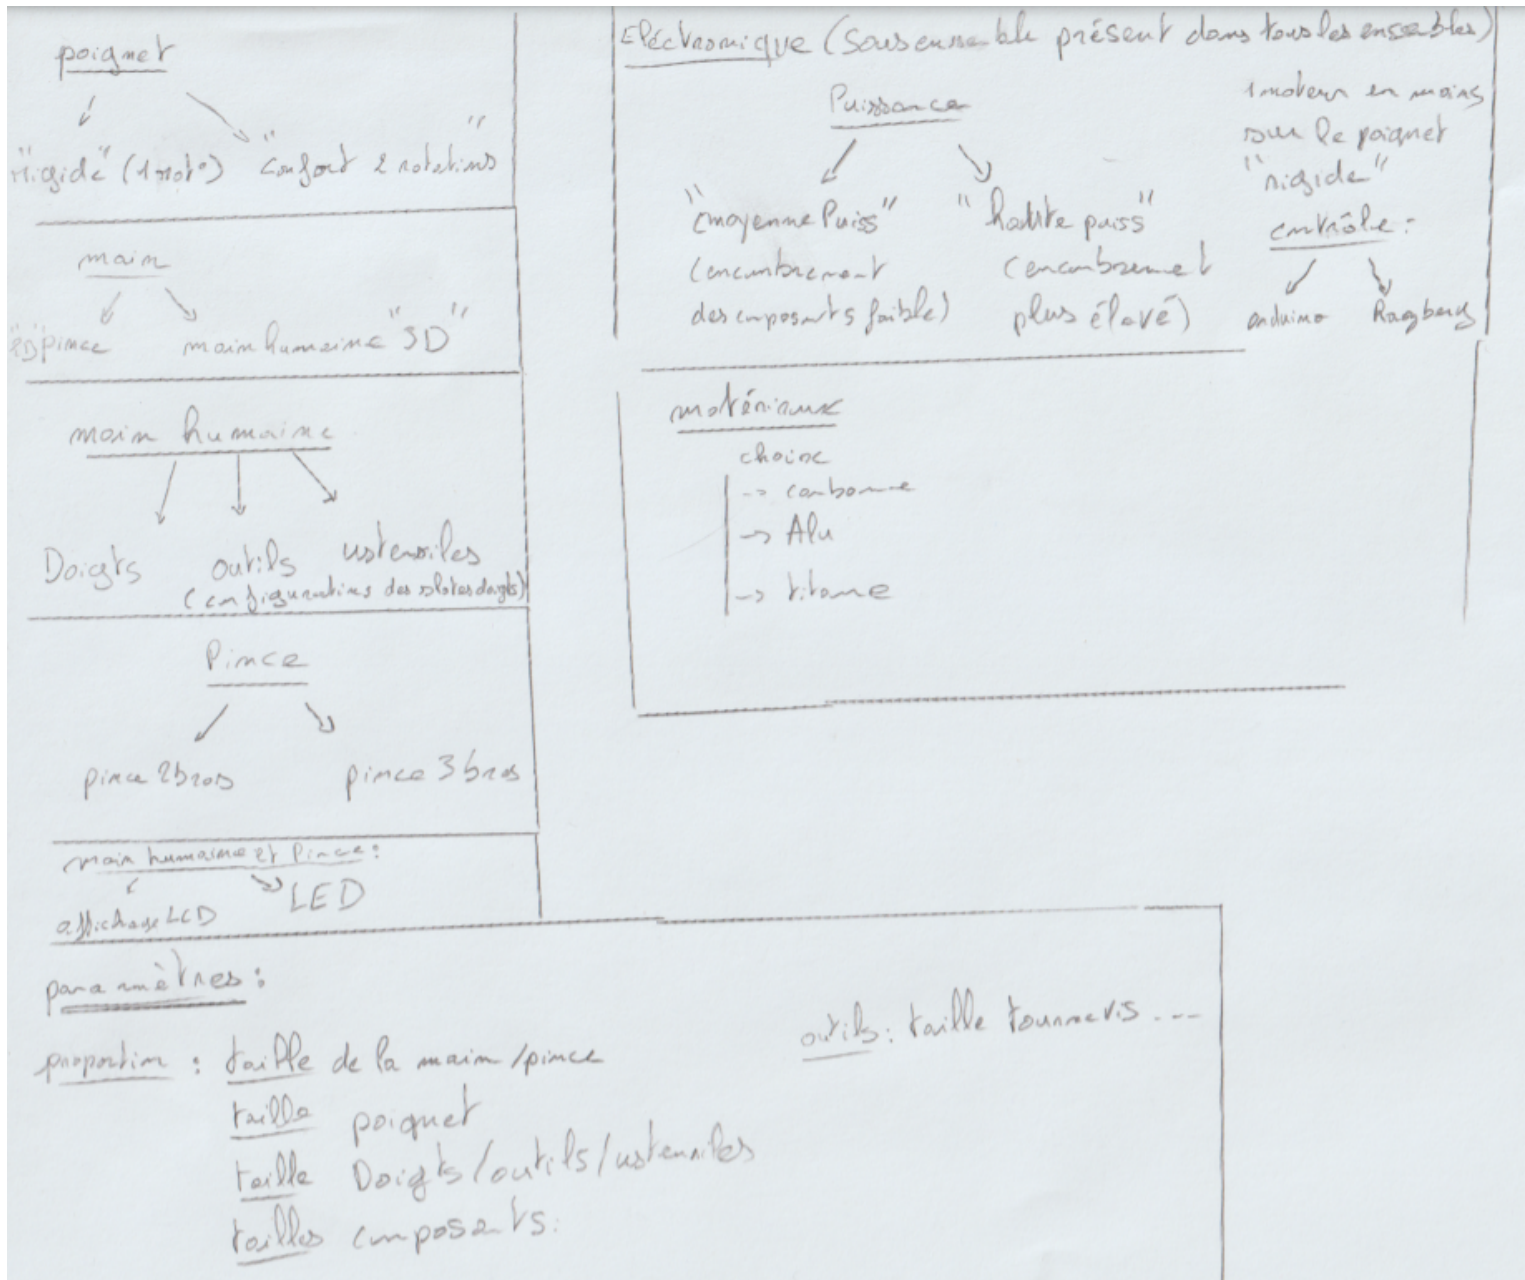 poignet
"rigide" (1 rot°) "confort 2 rotations"
main
"2D" pince main humaine "3D"
main humaine
Doigts outils ustensiles
(configurations des slots doigts)
Pince
pince 2 bras pince 3 bras
main humaine et Pince :
affichage LCD LED
Electronique (sous ensemble présent dans tous les ensembles)
Puissance
"moyenne Puiss" "haute puiss"
(encombrement (encombrement
des composants faible) plus élevé)
1 moteur en moins
sur le poignet
"rigide"
contrôle :
arduino Raspberry
matériaux
choix
-> carbonne
-> Alu
-> titane
paramètres :
proportion : taille de la main/pince
taille poignet
taille Doigts/outils/ustensiles
tailles composants.
outils : taille tournevis ...